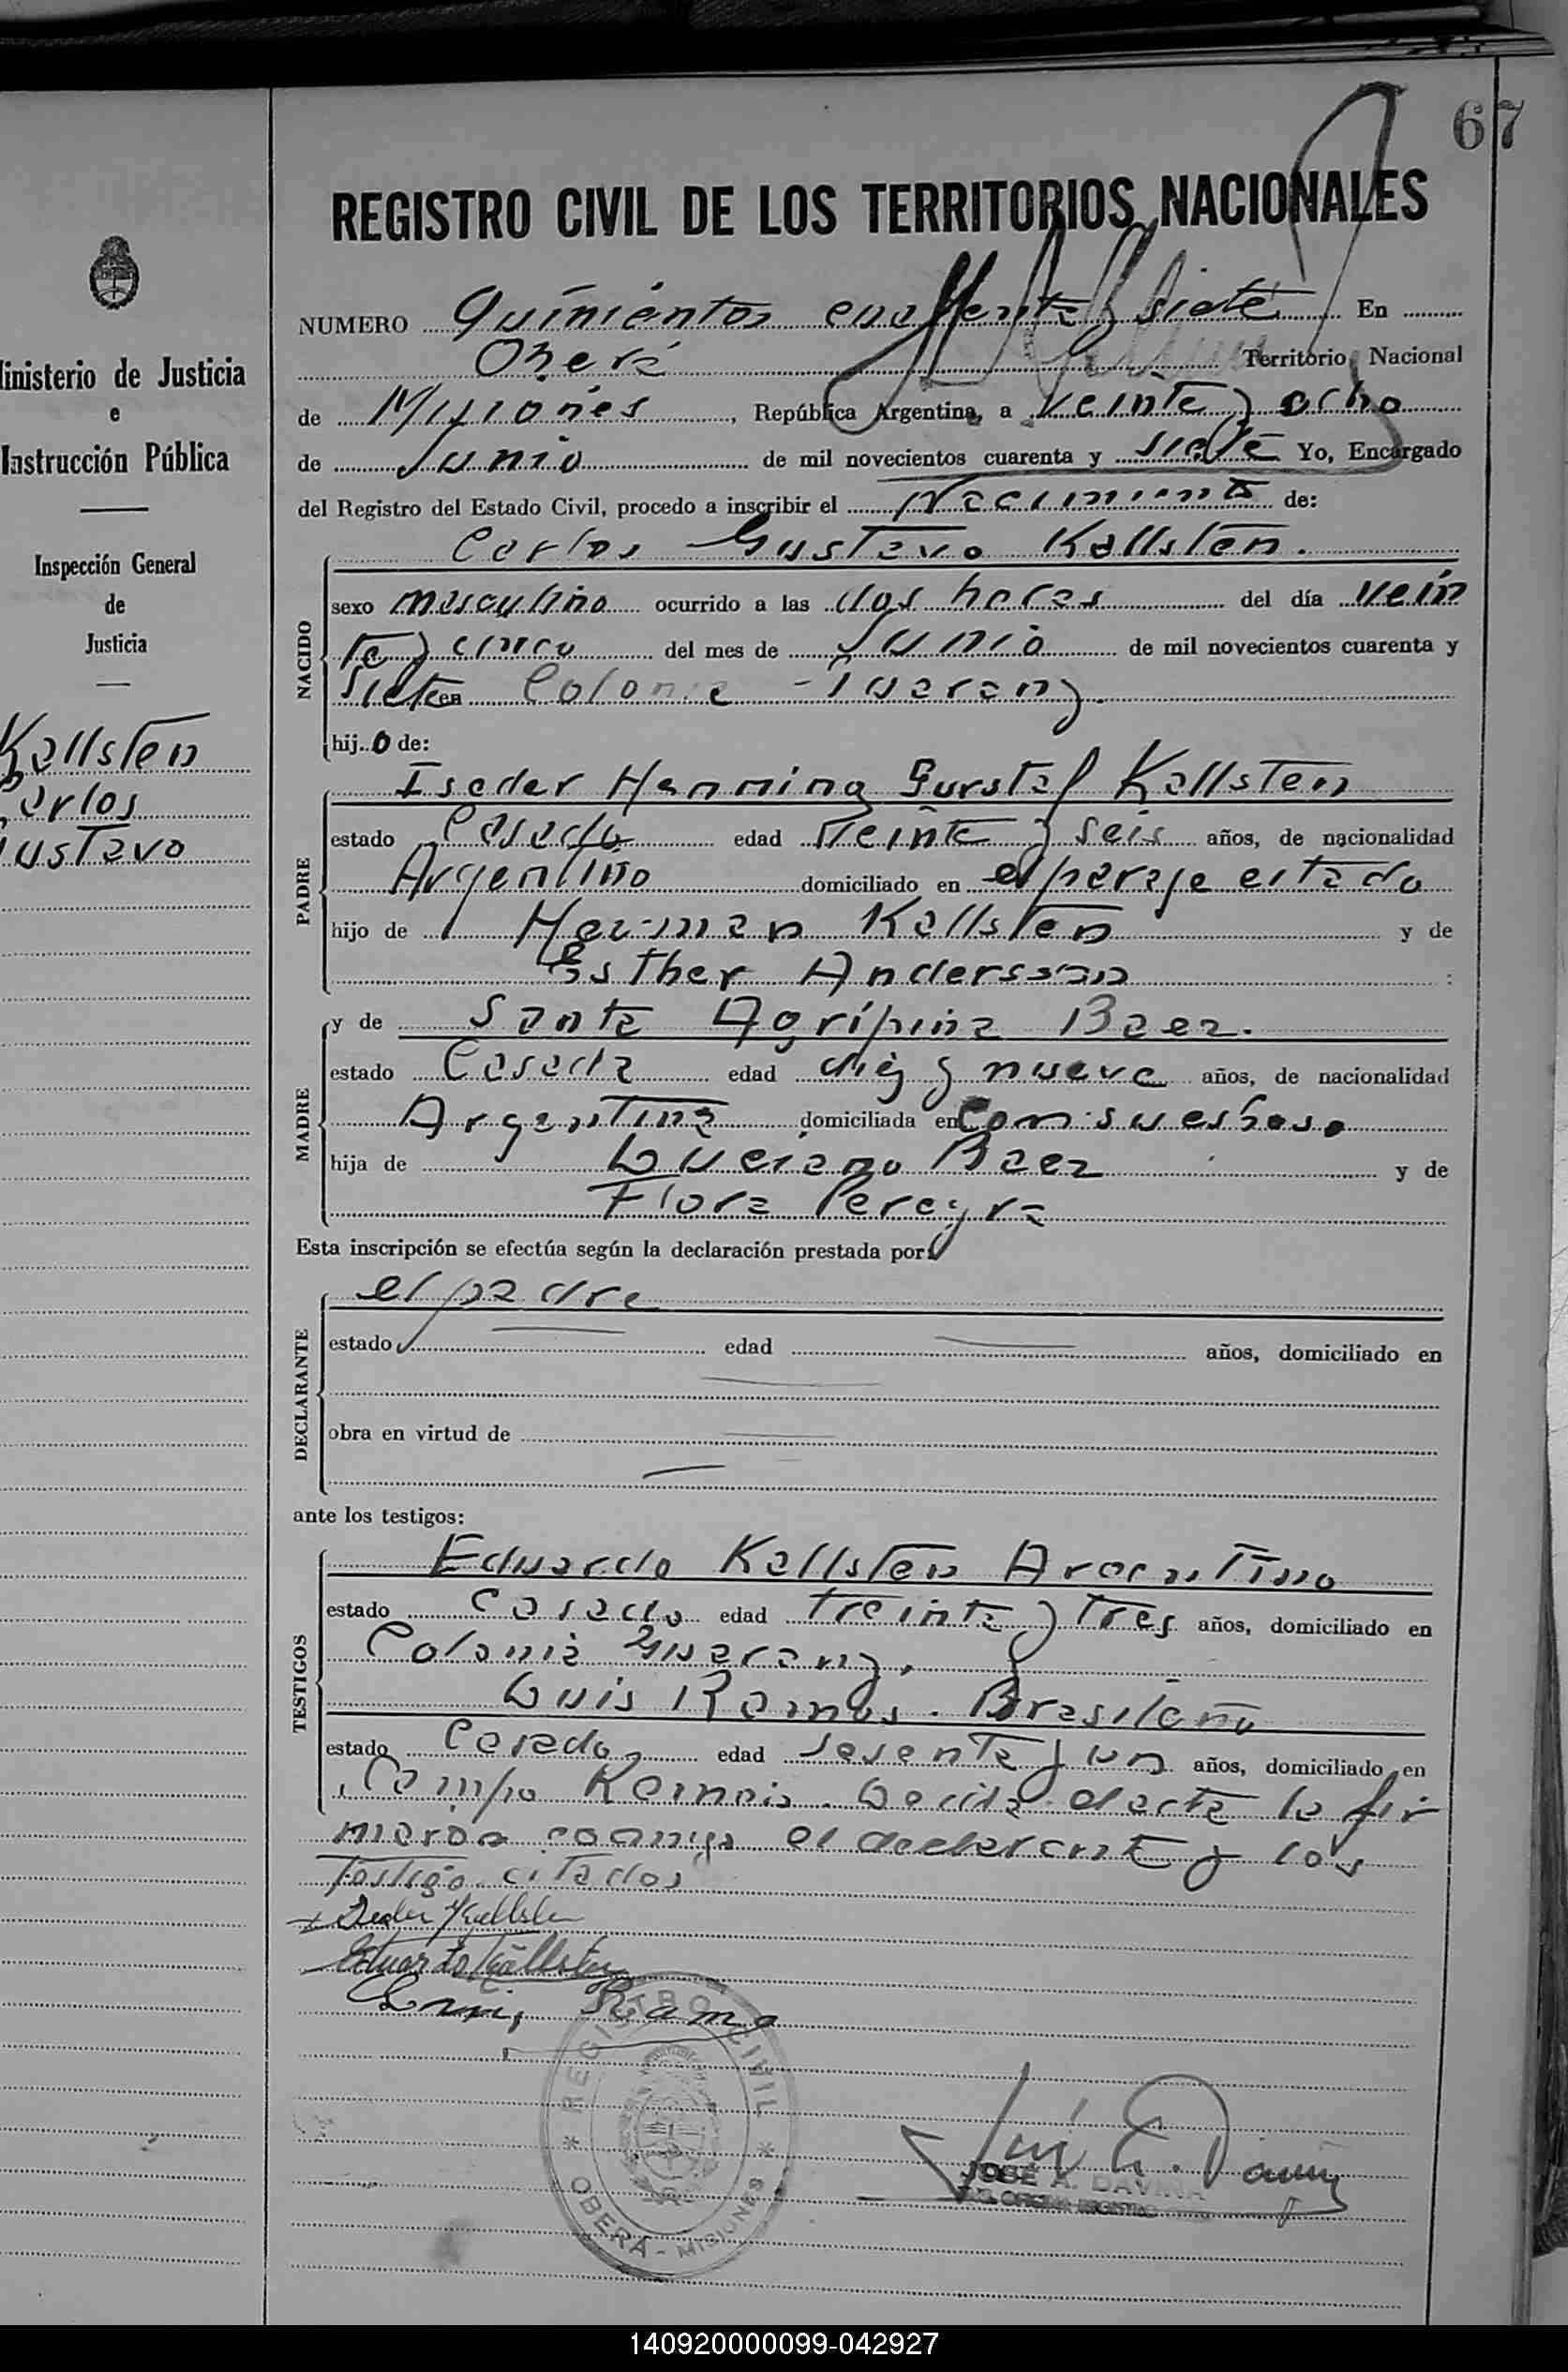 67
REGISTRO CIVIL DE LOS TERRITORIOS NACIONALES
Ministerio de Justicia
e
Instrucción Pública
Inspección General
de
Justicia
Kallsten
Carlos
Gustavo
NUMERO Quinientos cuarenta y siete En
Oberá Territorio Nacional
de Misiones, República Argentina, a veinte y ocho
de Junio de mil novecientos cuarenta y siete Yo, Encargado
del Registro del Estado Civil, procedo a inscribir el Nacimiento de:
NACIDO
Carlos Gustavo Kallsten.
sexo masculino ocurrido a las dos horas del día vein
te y cinco del mes de Junio de mil novecientos cuarenta y
siete en Colonia Guarany.
hijo de:
PADRE
Iseder Henning Gurstaf Kallsten
estado Casado edad Veinte y seis años, de nacionalidad
Argentino domiciliado en el paraje citado
hijo de Herman Kallsten y de
Esther Andersson
MADRE
y de Santa Agripina Baez.
estado Casada edad diez y nueve años, de nacionalidad
Argentina domiciliada en con su esposo
hija de Luciano Baez y de
Flora Pereyra
Esta inscripción se efectúa según la declaración prestada por:
DECLARANTE
el padre
estado edad años, domiciliado en
obra en virtud de
ante los testigos:
TESTIGOS
Eduardo Kallsten Argentino
estado Casado edad treinta y tres años, domiciliado en
Colonia Guarany.
Luis Ramos. Brasileño
estado Casado edad sesenta y un años, domiciliado en
Campo Leida el acta la fir
maron conmigo el declarante y los
testigo citados
Kallsten
Eduardo Källsten
Luis Ramo
REGISTRO CIVIL
OBERÁ - MISIONES
JOSÉ A. DAVIÑA
140920000099-042927